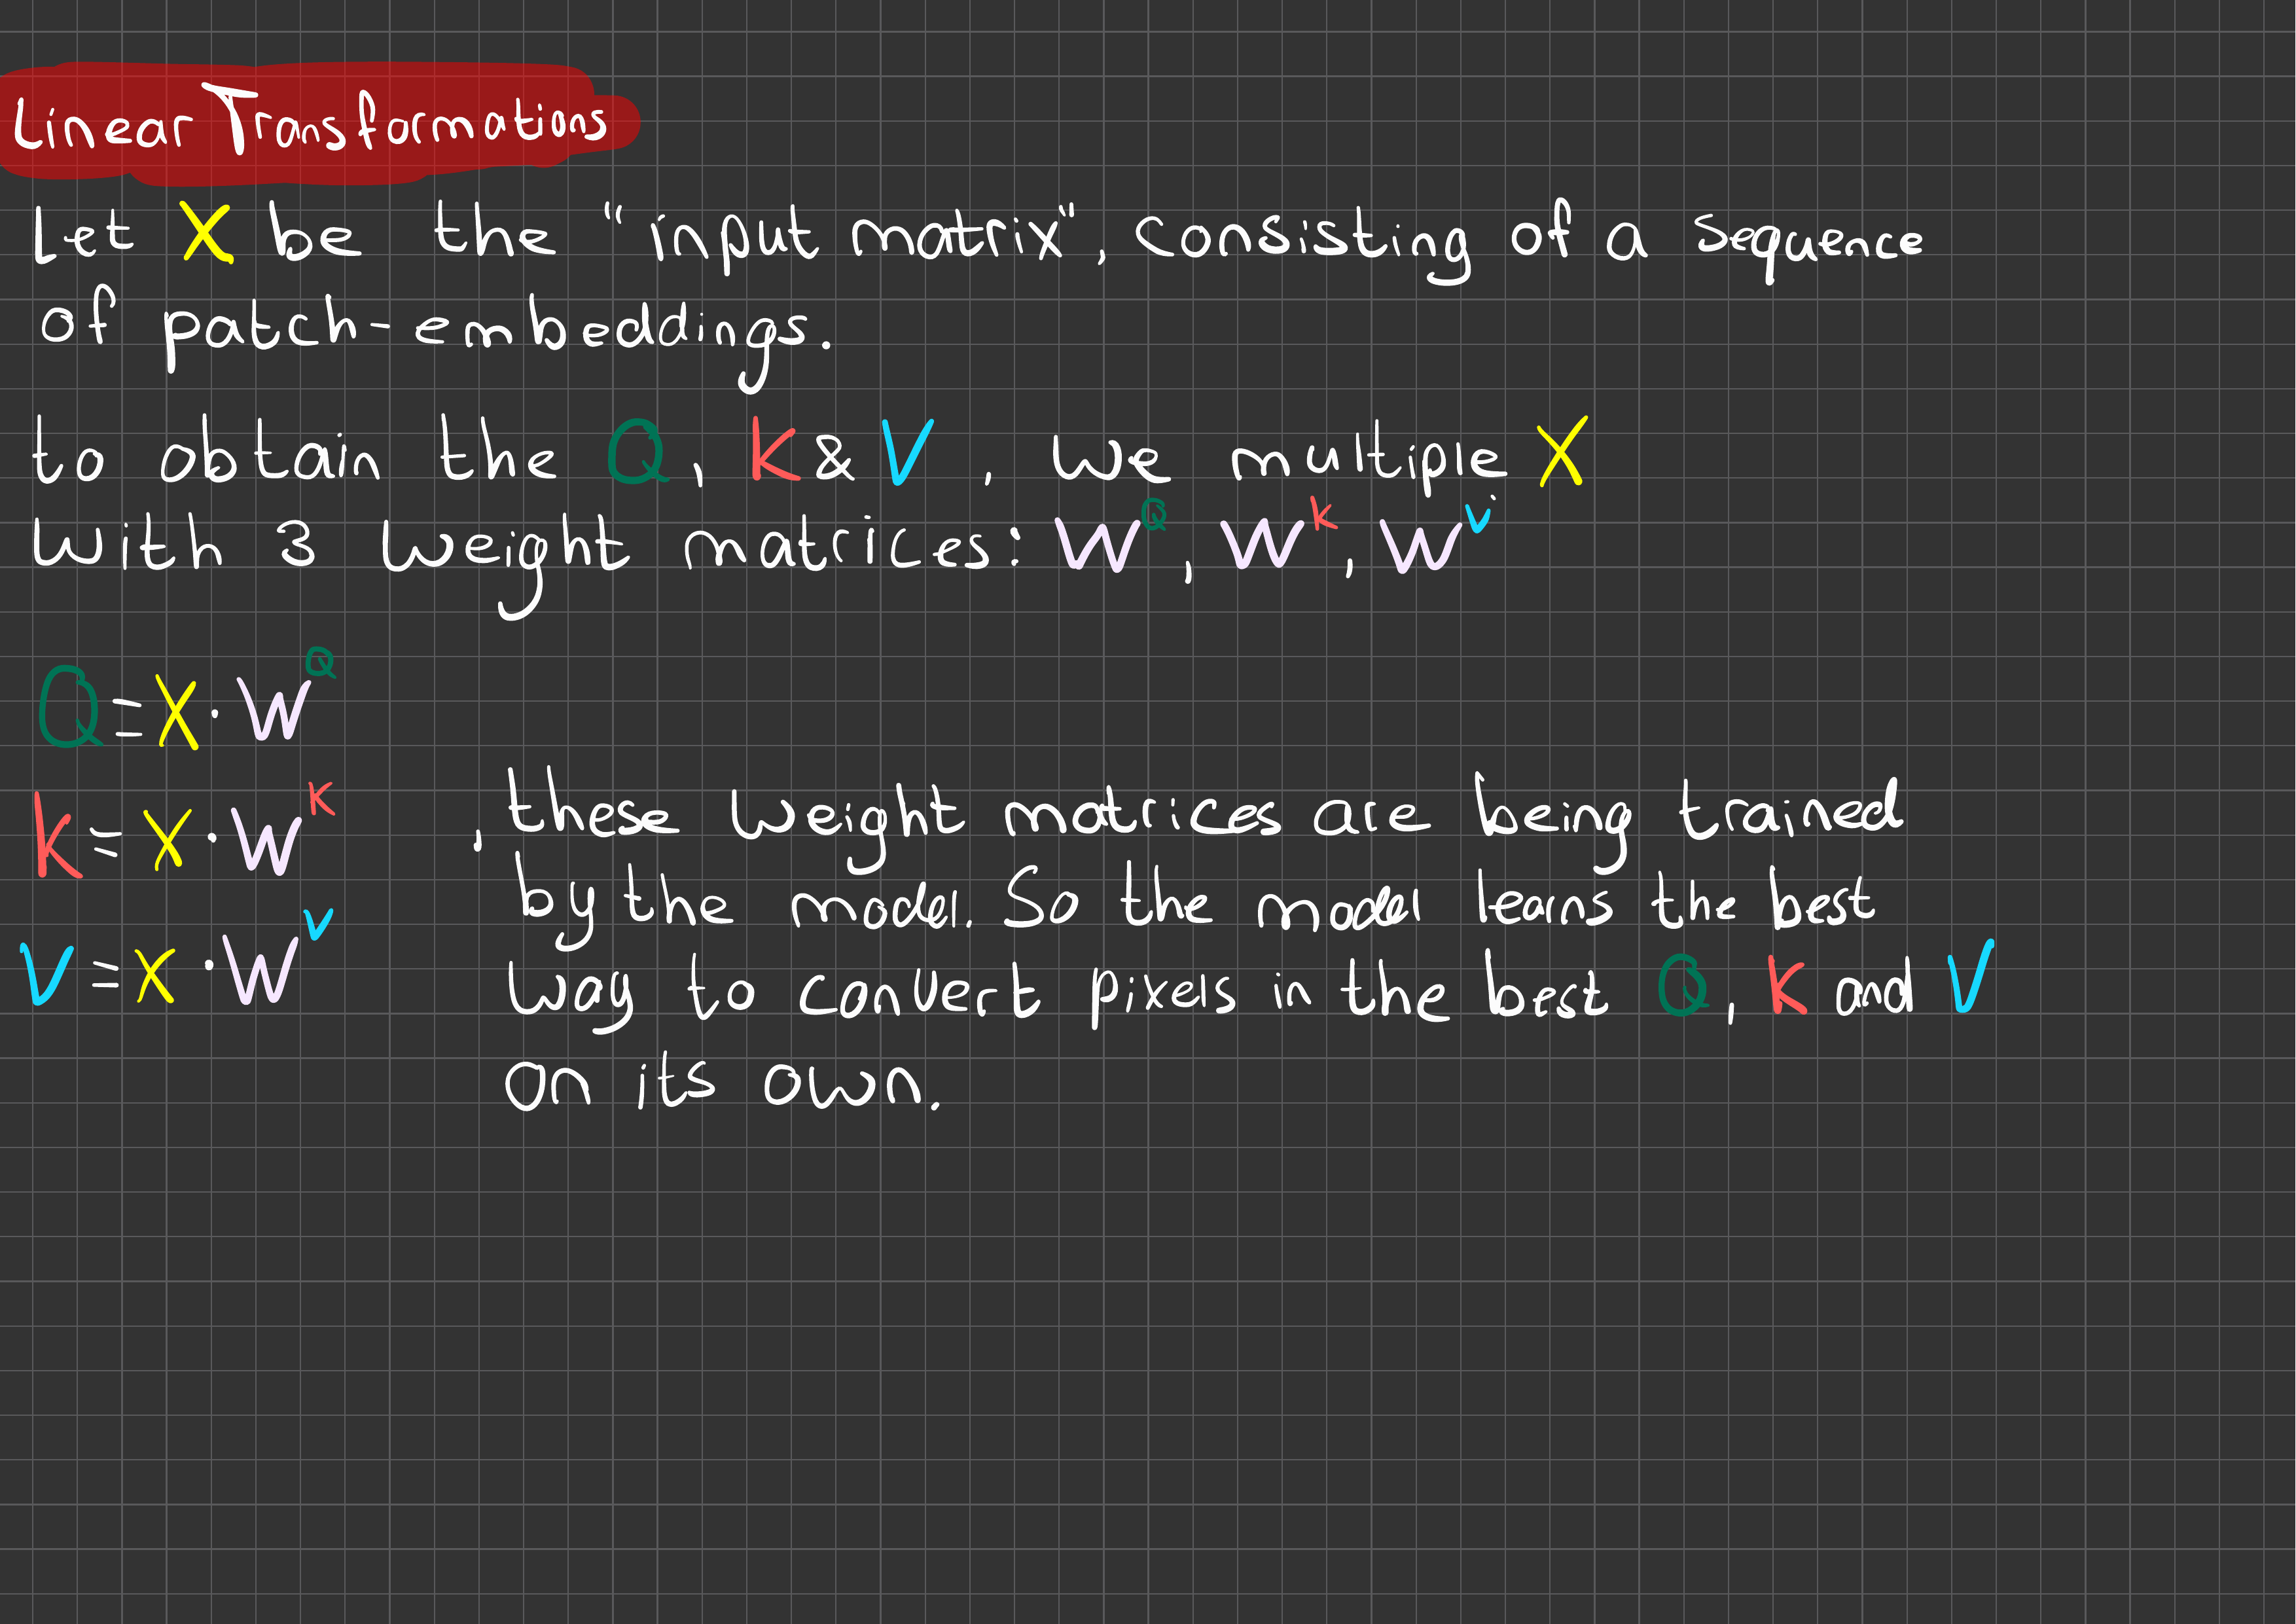 Linear Transformations
Let X be the "input matrix", consisting of a sequence
of patch-embeddings.
to obtain the Q, K & V, we multiple X
with 3 weight matrices: W^Q, W^K, W^V
Q = X · W^Q
K = X · W^K
V = X · W^V
, these weight matrices are being trained
by the model. So the model learns the best
way to convert pixels in the best Q, K and V
on its own.